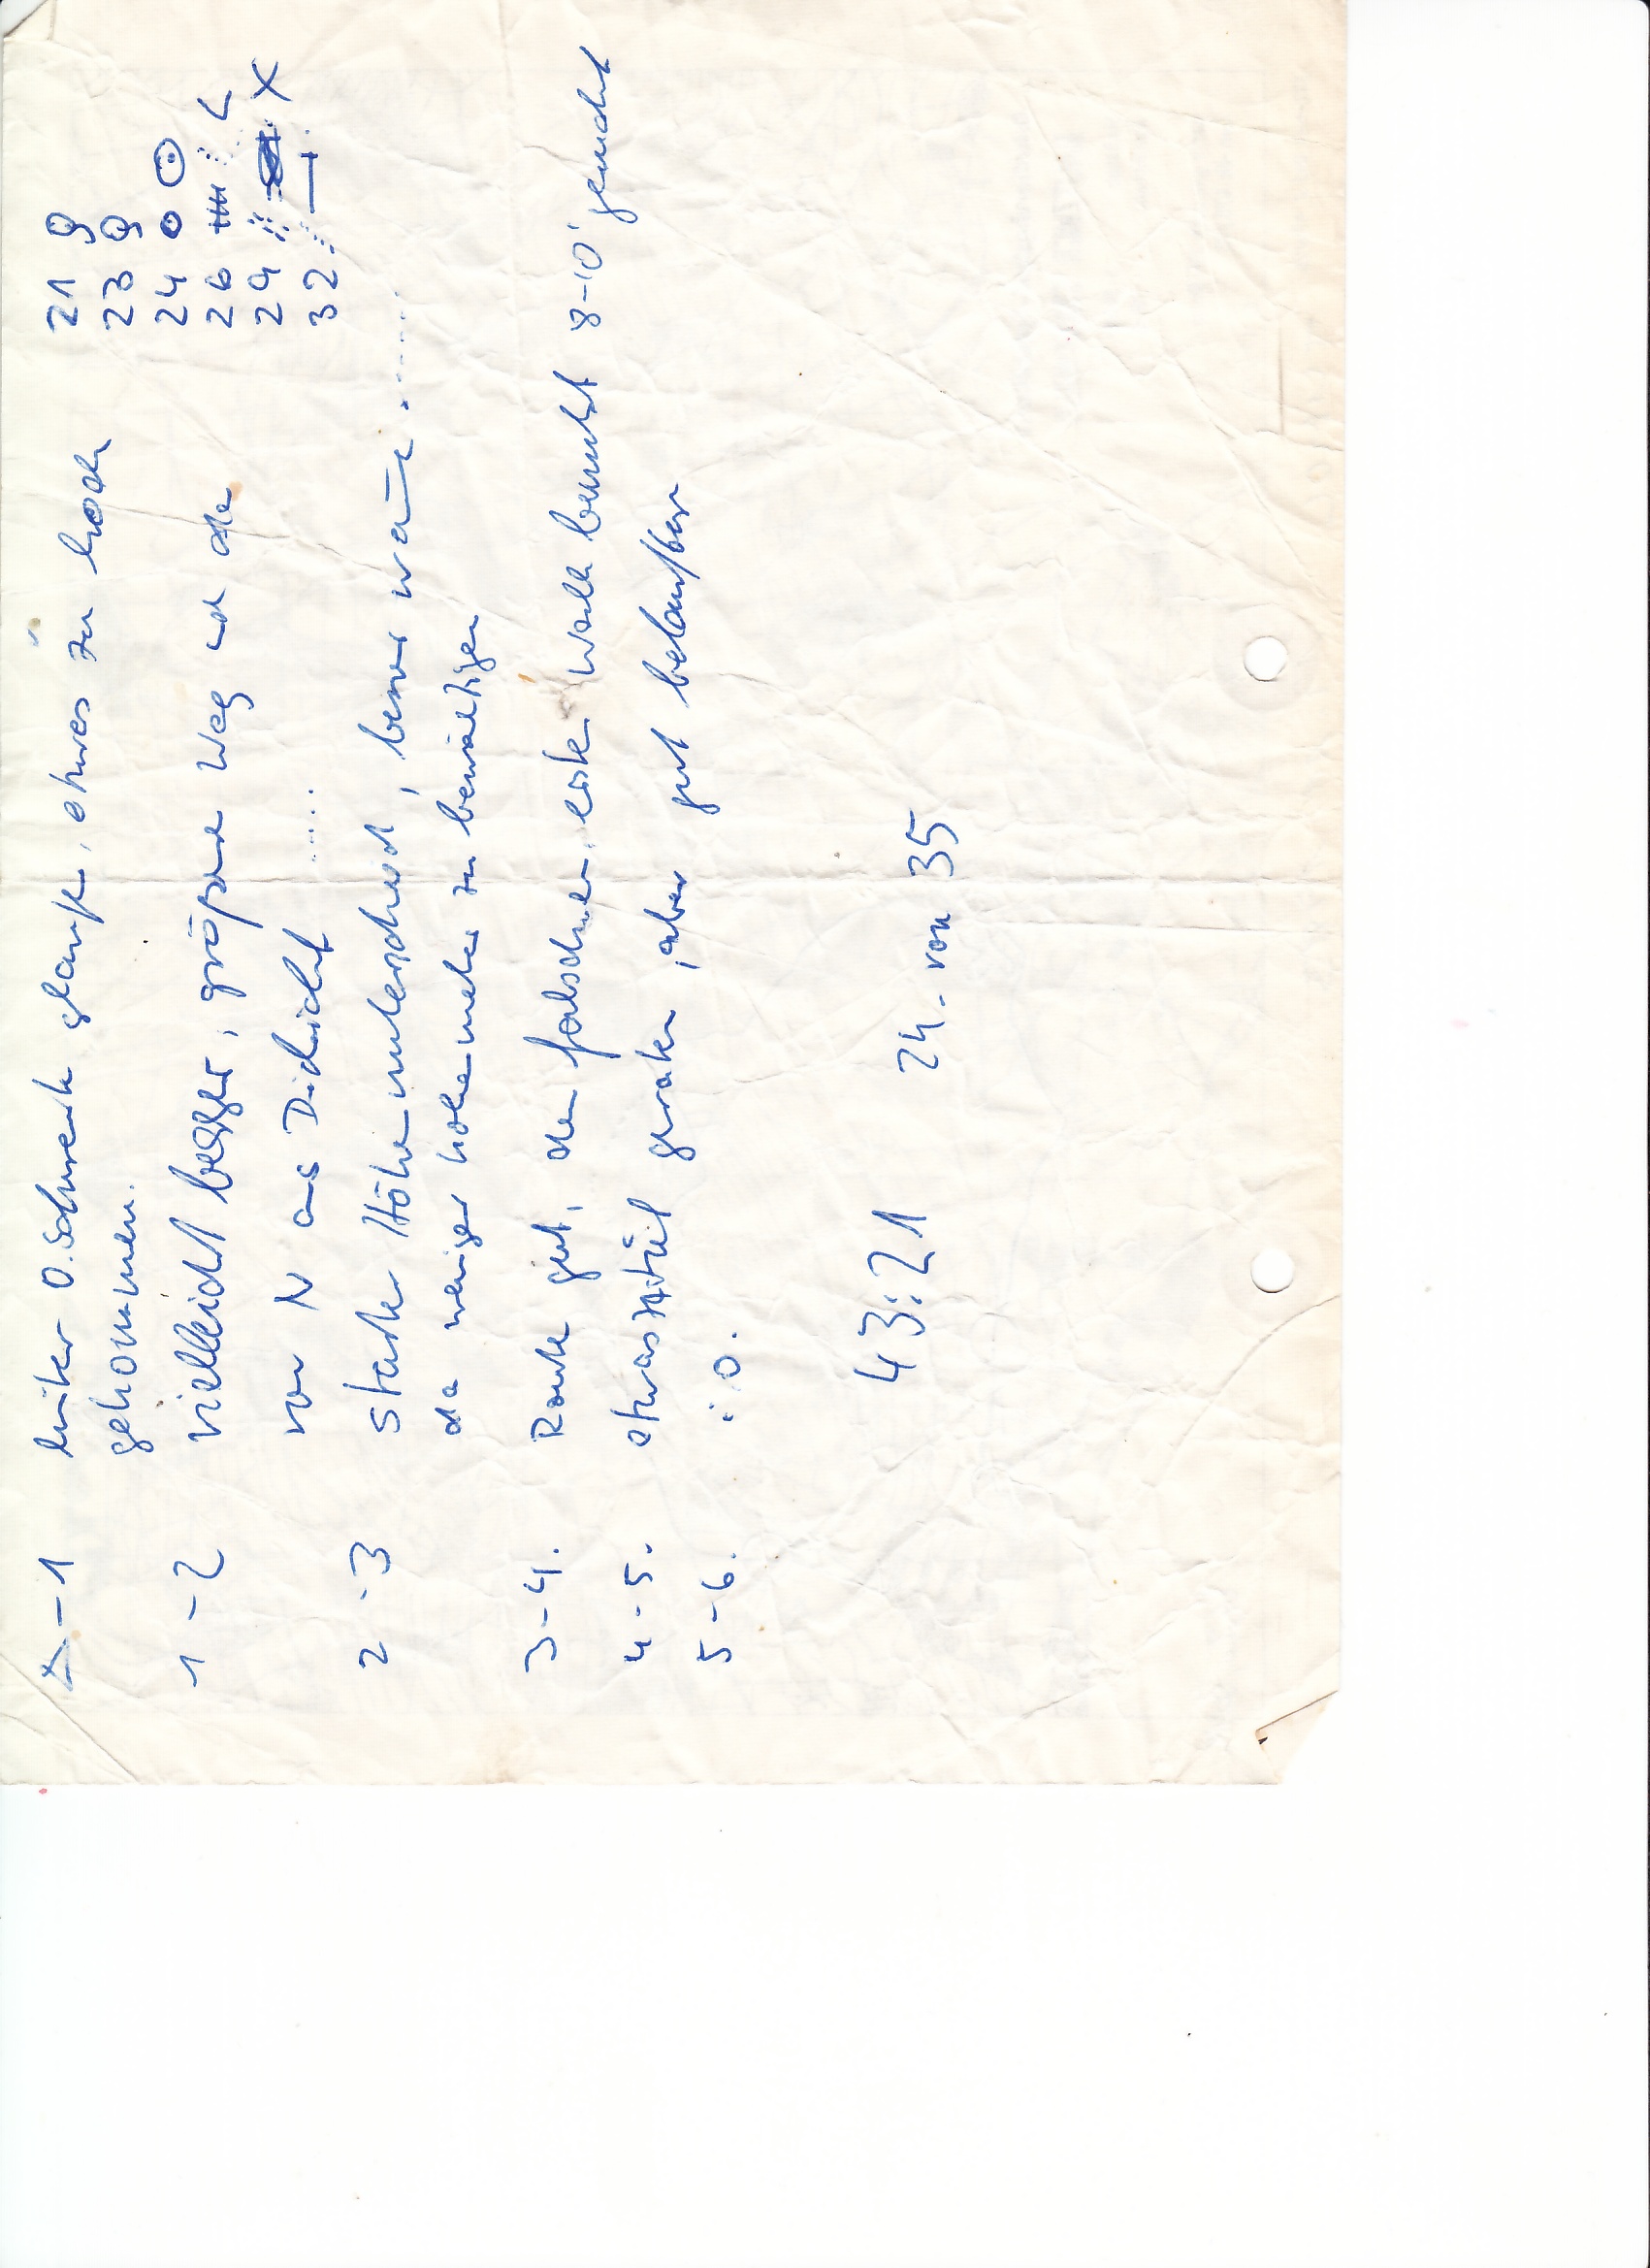 △–1 hinter O. Schneck glaufe, etwas zu hoch
gekommen.
1–2 vielleicht besser, größerer Weg und da
von N ans Dickicht ....
2–3 starker Höhenunterschied, besser wenn ......
da weniger Höhenmeter zu bewältigen
3–4. Route gut, den falschen, erste Wall benutzt 8–10' gesucht
4–5. etwas geraten, aber gut belaufbar
5–6. i. O.
43:21 24. von 35
21
23
24
26
29
32